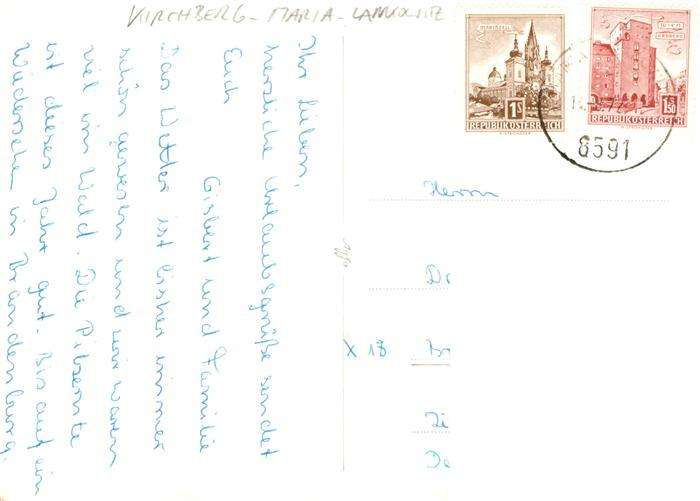 KIRCHBERG - MARIA - LANKOWITZ
Ihr Lieben,
herzliche Urlaubsgrüße sendet
Euch
Gisbert und Familie
Das Wetter ist bisher immer
schön gewesen und wir waren
viel im Wald. Die Pilzernte
ist dieses Jahr gut. Bis auf ein
Wiedersehen in Brandenburg.
MARIAZELL
1S
REPUBLIK ÖSTERREICH
1.50
REPUBLIK ÖSTERREICH
8591
Herrn
X 18